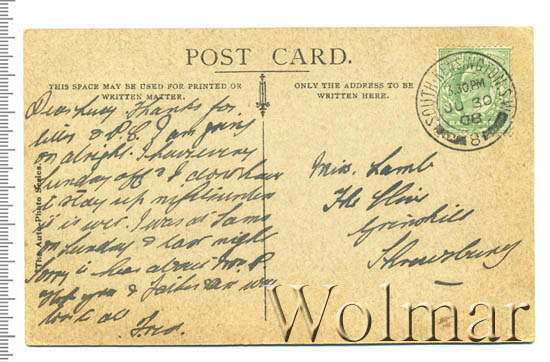 POST CARD.
THIS SPACE MAY BE USED FOR PRINTED OR
WRITTEN MATTER.
ONLY THE ADDRESS TO BE
WRITTEN HERE.
SOUTH KENSINGTON S.W.
6.30 PM
JU 30
08
81
Dear Lucy. Thanks for
& P.C. I am going
on alright. I have every
Sunday off & I don't have
to stay up
it is over. I was at
on Sunday & last night
Sorry to hear about
Hope you & Father are well
love to all
Fred.
Miss. Lamb
The Olive
Grinshill
Shrewsbury
The Auto-Photo Series.
Wolmar